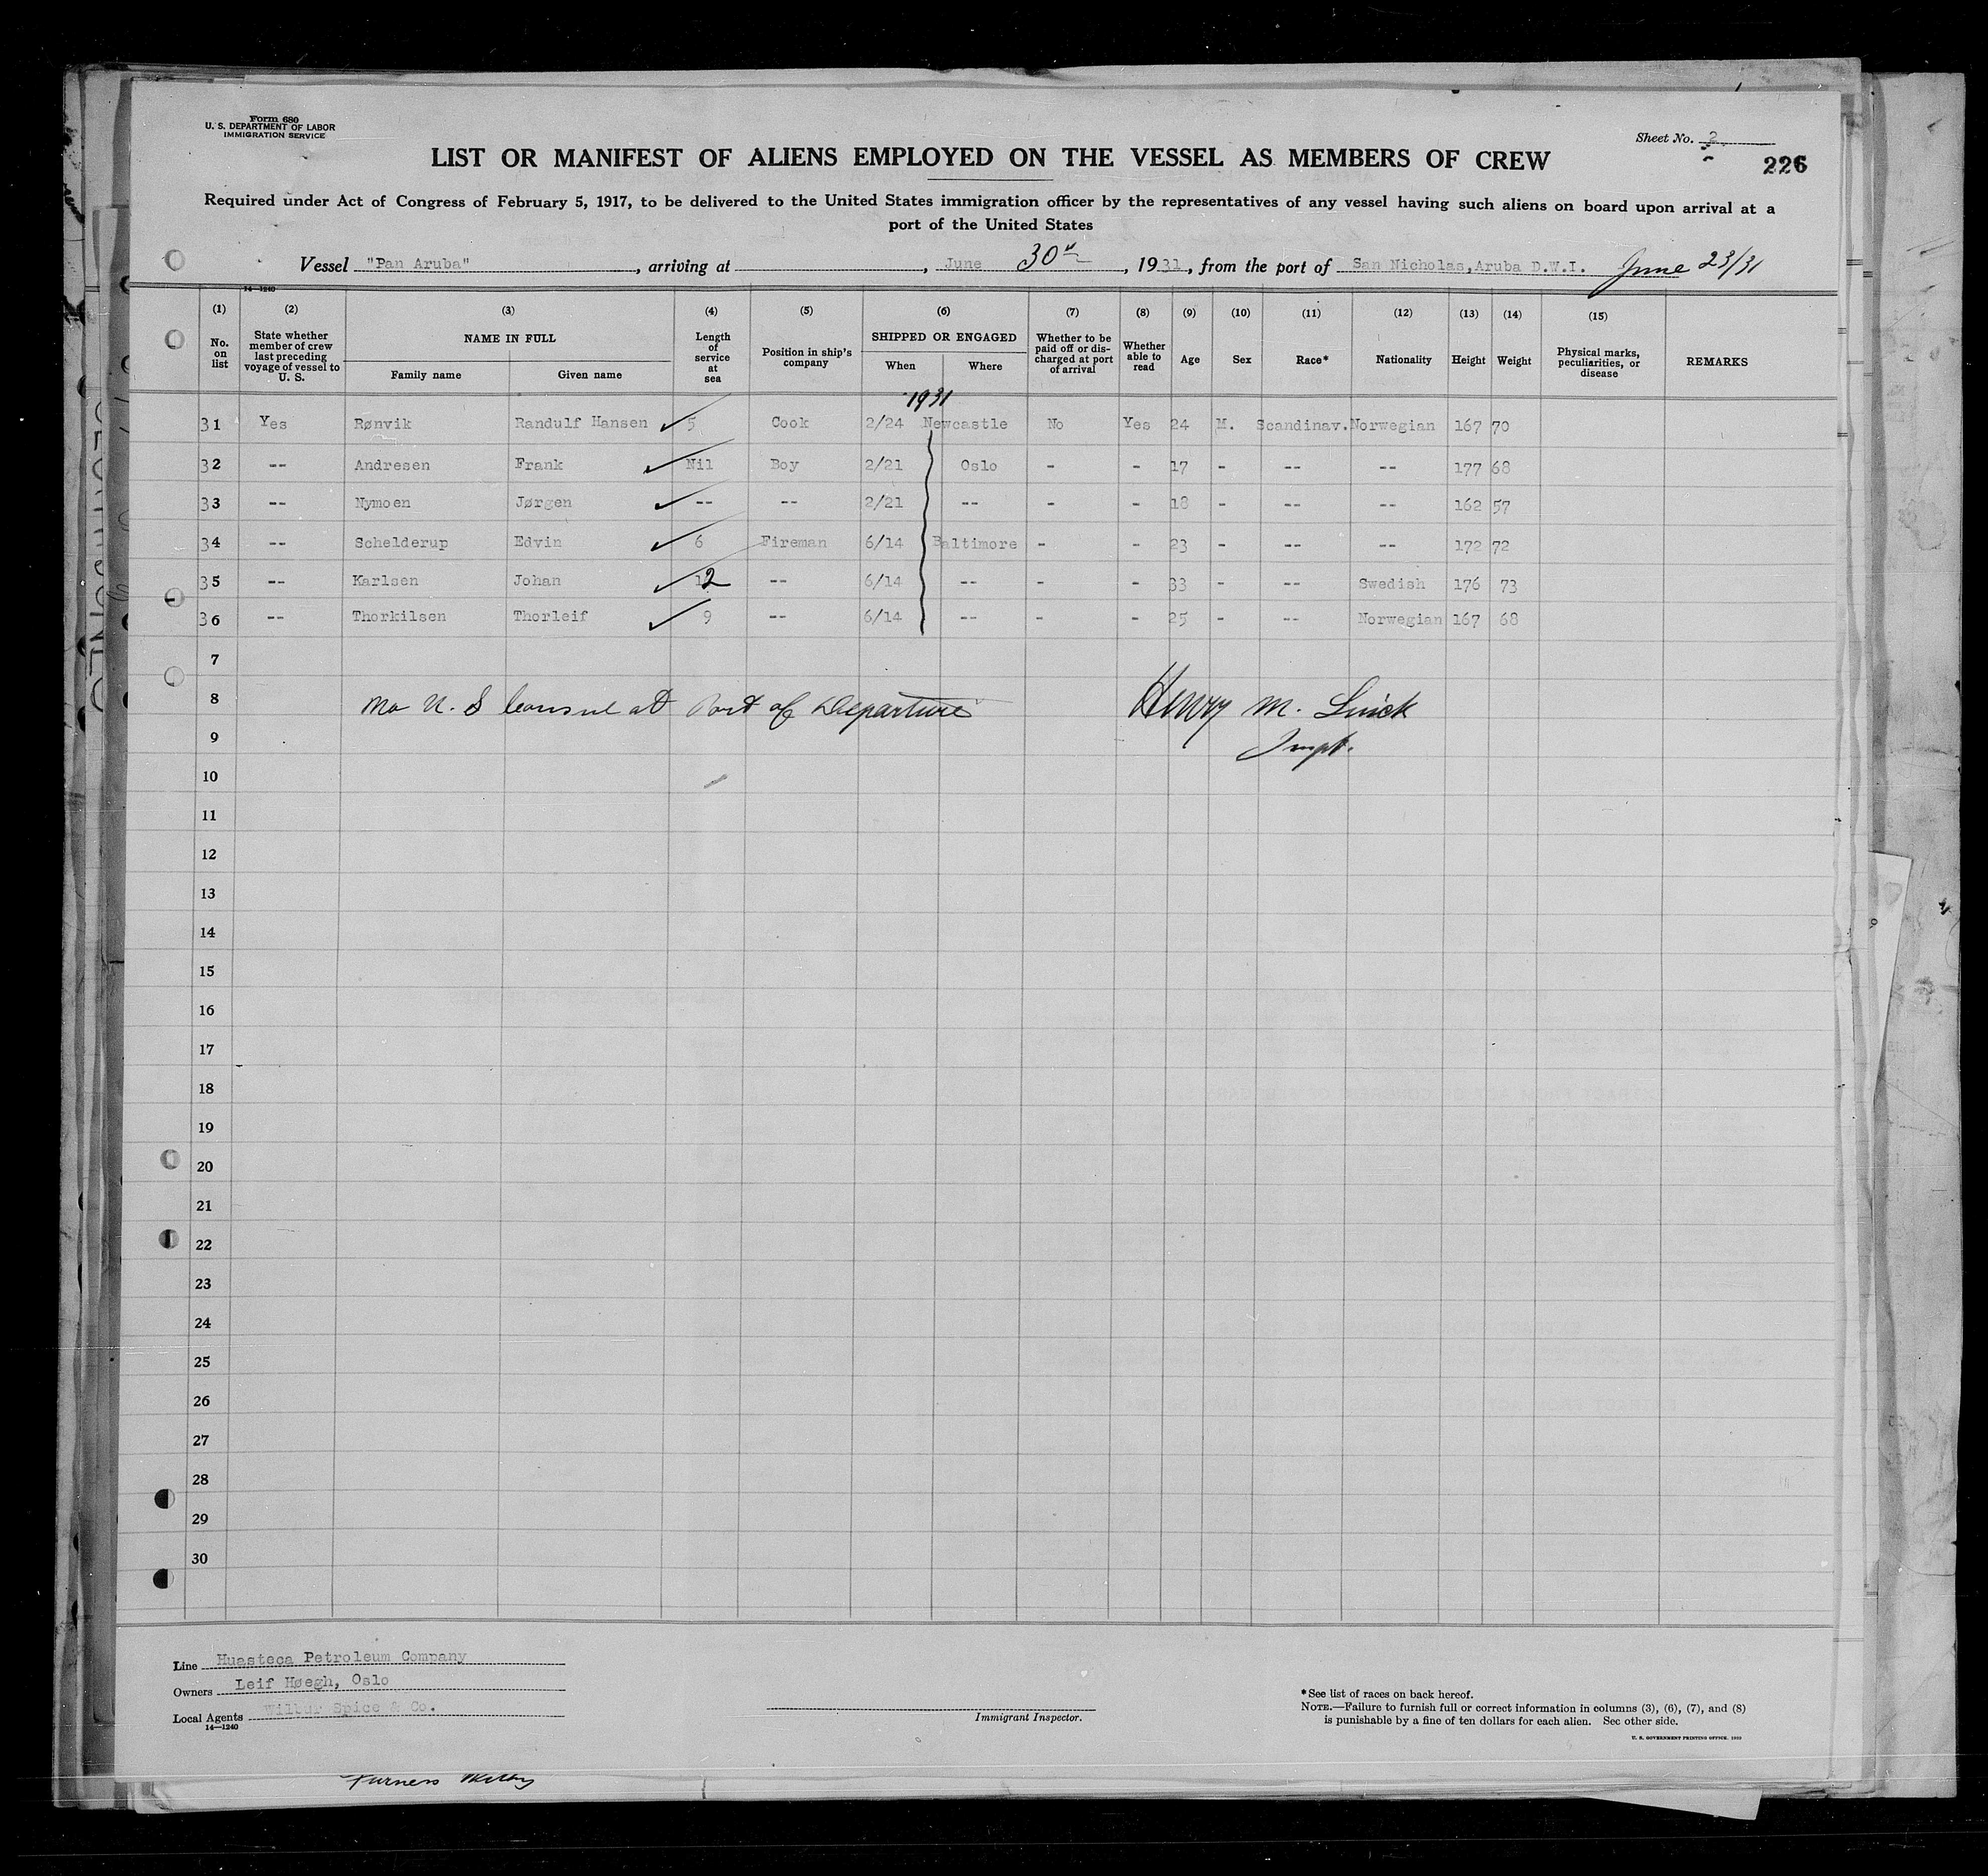 Form 680
U. S. DEPARTMENT OF LABOR
IMMIGRATION SERVICE
Sheet No. 2
226
LIST OR MANIFEST OF ALIENS EMPLOYED ON THE VESSEL AS MEMBERS OF CREW
Required under Act of Congress of February 5, 1917, to be delivered to the United States immigration officer by the representatives of any vessel having such aliens on board upon arrival at a
port of the United States
Vessel "Pan Aruba", arriving at , June 30th, 1931, from the port of San Nicholas, Aruba D.W.I. June 23/31
14—1240
(1) (2) (3) (4) (5) (6) (7) (8) (9) (10) (11) (12) (13) (14) (15)
No. on list
State whether member of crew last preceding voyage of vessel to U. S.
NAME IN FULL
Family name
Given name
Length of service at sea
Position in ship's company
SHIPPED OR ENGAGED
When
Where
Whether to be paid off or discharged at port of arrival
Whether able to read
Age
Sex
Race*
Nationality
Height
Weight
Physical marks, peculiarities, or disease
REMARKS
1931
31 Yes Rønvik Randulf Hansen 5 Cook 2/24 Newcastle No Yes 24 M. Scandinav. Norwegian 167 70
32 -- Andresen Frank Nil Boy 2/21 Oslo - - 17 - -- -- 177 68
33 -- Nymoen Jørgen -- -- 2/21 -- - - 18 - -- -- 162 57
34 -- Schelderup Edvin 6 Fireman 6/14 Baltimore - - 23 - -- -- 172 72
35 -- Karlsen Johan 12 -- 6/14 -- - - 33 - -- Swedish 176 73
36 -- Thorkilsen Thorleif 9 -- 6/14 -- - - 25 - -- Norwegian 167 68
7
8 No U. S Consul at Port of Departure Henry M.
9 Inspt.
10
11
12
13
14
15
16
17
18
19
20
21
22
23
24
25
26
27
28
29
30
Line Huasteca Petroleum Company
Owners Leif Høegh, Oslo
Local Agents Wilbur Spice & Co.
14—1240
Immigrant Inspector.
*See list of races on back hereof.
NOTE.—Failure to furnish full or correct information in columns (3), (6), (7), and (8)
is punishable by a fine of ten dollars for each alien. See other side.
U. S. GOVERNMENT PRINTING OFFICE
Furness Withy